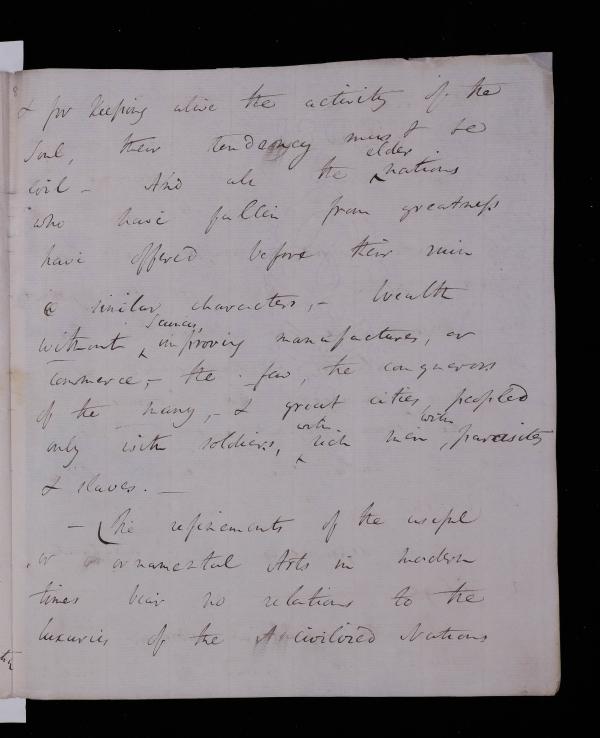 & for keeping alive the activity of the
Soul, their tendency must be
evil – And all the elder nations
who have fallen from greatness
have offered before their ruin
a similar characters, – Wealth
without Sciences, improving manufactures, or
Commerce, – the few, the conquerors
of the many, – & great cities, peopled
only with soldiers, with rich men, with parasites
& slaves. –
– The refinements of the useful
or ornamental Arts in modern
times bear no relations to the
luxuries of the A civilized Nations